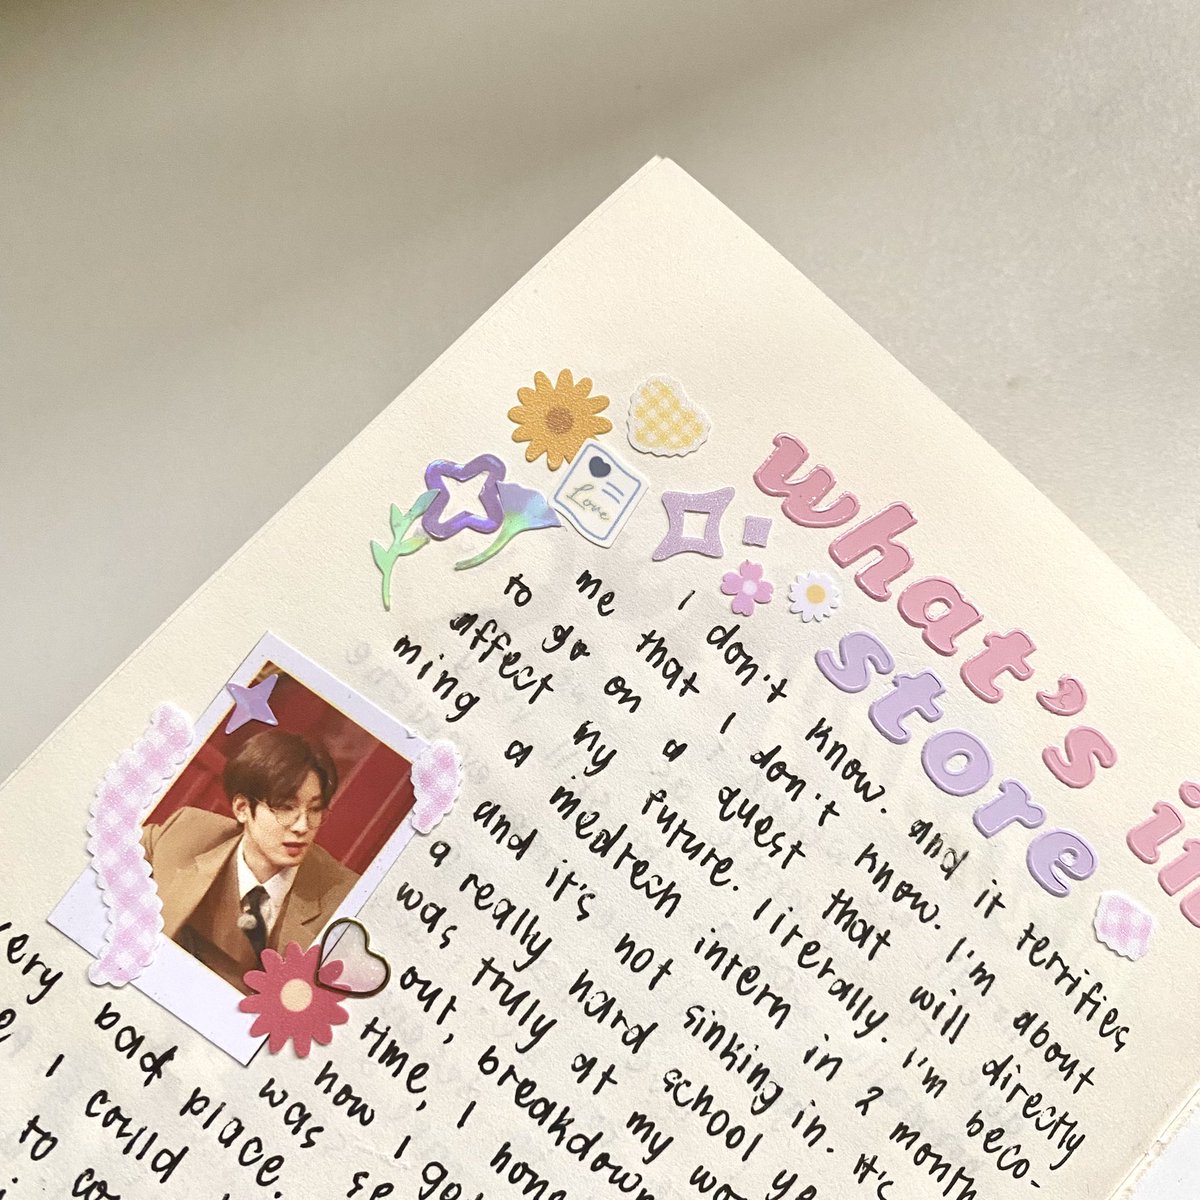 what's
store
I don't know. and it terrifies
me that I don't know. I'm about
to go on a quest that will directly
affect my future. literally. I'm beco-
ming a medtech intern in 2 month
and it's not sinking in. it's
a really hard school ye
was truly at my wo
out, breakdown
time, I hon
how I go
was se
very bad place.
I could
to co
Love